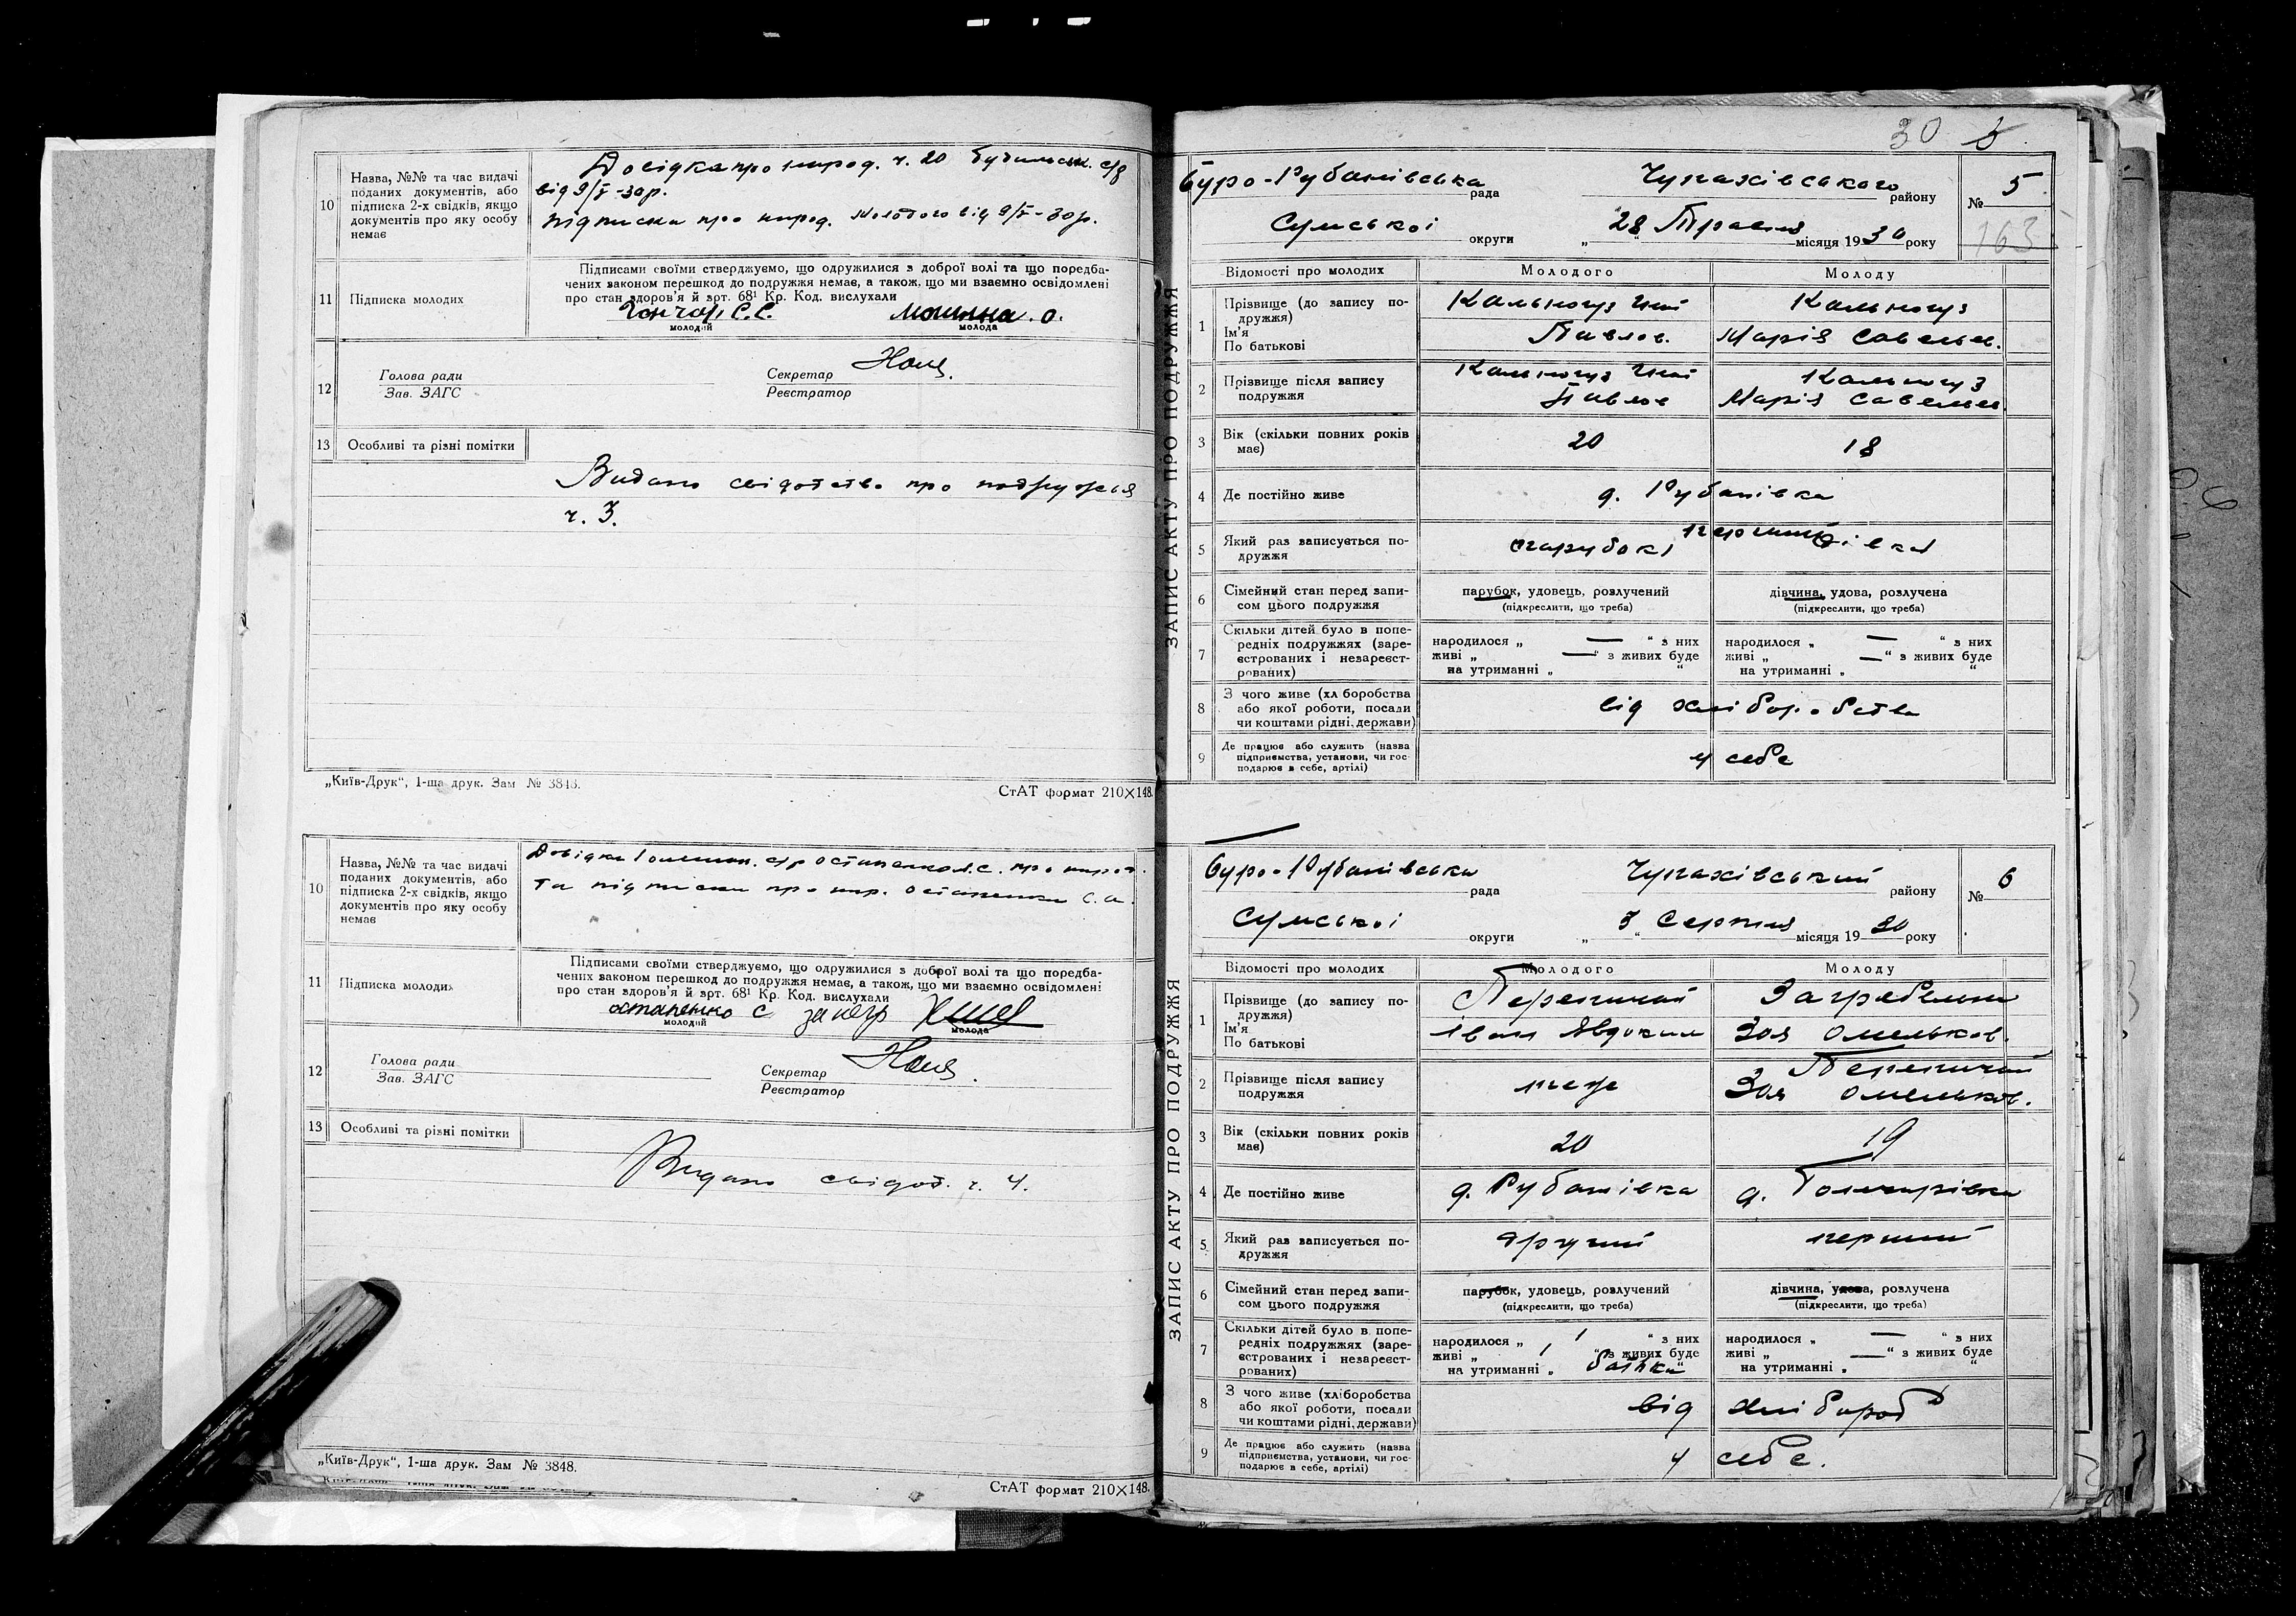 10 Назва, №№ та час видачі
поданих документів, або
підписка 2-х свідків, якщо
документів про яку особу
немає
Довідка про народ. ч. 20 с/р
від 9/V-30р.
Підписка про народ. Молодого від 9/V-30р.
11 Підписка молодих
Підписами своїми стверджуємо, що одружилися з доброї волі та що поредба-
чених законом перешкод до подружжя немає, а також, що ми взаємно освідомлені
про стан здоров'я й арт. 68¹ Кр. Код. вислухали
Гончар С.С. О.
молодий молода
12 Голова ради Секретар
Зав. ЗАГС Реєстратор
13 Особливі та різні помітки
Видано свідотство про подружжя
ч. 3.
„Київ-Друк“, 1-ша друк. Зам № 3848.
СтАТ формат 210×148.
10 Назва, №№ та час видачі
поданих документів, або
підписка 2-х свідків, якщо
документів про яку особу
немає
Довідка с/р про народ.
та підписка про нар. Остапенка С.
11 Підписка молодих
Підписами своїми стверджуємо, що одружилися з доброї волі та що поредба-
чених законом перешкод до подружжя немає, а також, що ми взаємно освідомлені
про стан здоров'я й арт. 68¹ Кр. Код. вислухали
Остапенко С
молодий молода
12 Голова ради Секретар
Зав. ЗАГС Реєстратор
13 Особливі та різні помітки
Видано свідот. ч. 4.
„Київ-Друк“, 1-ша друк. Зам № 3848.
СтАТ формат 210×148.
30 5
ЗАПИС АКТУ ПРО ПОДРУЖЖЯ
Буро-Рубанівська рада Чупахівського району № 5
Сумської округи „28“ Травня місяця 1930 року 163
Відомості про молодих Молодого Молоду
1 Прізвище (до запису по-
дружжя)
Ім'я
По батькові
Кальногуз
Павлов.
Кальногуз
Марія Савельев.
2 Прізвище після запису
подружжя
Кальногуз
Павлов
Кальногуз
Марія Савельев
3 Вік (скільки повних років
має)
20 18
4 Де постійно живе
д. Рубанівка
5 Який раз записується по-
дружжя
парубок перший дівка
6 Сімейний стан перед запи-
сом цього подружжя
парубок, удовець, розлучений
(підкреслити, що треба)
дівчина, удова, розлучена
(підкреслити, що треба)
7 Скільки дітей було в попе-
редніх подружжях (заре-
єстрованих і незареєст-
рованих)
народилося „ — “ з них
живі „ — “ з живих буде
на утриманні „ “
народилося „ — “ з них
живі „ — “ з живих буде
на утриманні „ “
8 З чого живе (хліборобства
або якої роботи, посади
чи коштами рідні, держави)
від хліборобства
9 Де працює або служить (назва
підприємства, установи, чи гос-
подарює в себе, артілі)
у себе
ЗАПИС АКТУ ПРО ПОДРУЖЖЯ
Буро-Рубанівська рада Чупахівський району № 6
Сумської округи „3“ Серпня місяця 1930 року
Відомості про молодих Молодого Молоду
1 Прізвище (до запису по-
дружжя)
Ім'я
По батькові
Іван Явдоким
Загребельна
Зоя Омельков.
2 Прізвище після запису
подружжя
теж
Зоя Омельков.
3 Вік (скільки повних років
має)
20 19
4 Де постійно живе
д. Рубанівка
д. Гончарівка
5 Який раз записується по-
дружжя
другий перший
6 Сімейний стан перед запи-
сом цього подружжя
парубок, удовець, розлучений
(підкреслити, що треба)
дівчина, удова, розлучена
(підкреслити, що треба)
7 Скільки дітей було в попе-
редніх подружжях (заре-
єстрованих і незареєст-
рованих)
народилося „ 1 “ з них
живі „ 1 “ з живих буде
на утриманні „ батька “
народилося „ — “ з них
живі „ — “ з живих буде
на утриманні „ “
8 З чого живе (хліборобства
або якої роботи, посади
чи коштами рідні, держави)
від хлібороб
9 Де працює або служить (назва
підприємства, установи, чи гос-
подарює в себе, артілі)
у себе.